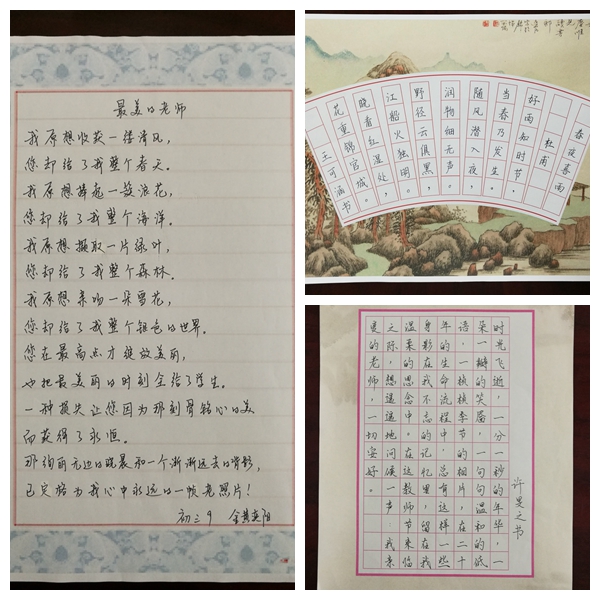 最美的老师
我原想收获一缕清风，
您却给了我整个春天。
我原想捧起一簇浪花，
您却给了我整个海洋。
我原想撷取一片绿叶，
您却给了我整个森林。
我原想亲吻一朵雪花，
您却给了我整个银色的世界。
您在最高点才绽放美丽，
也把最美丽的时刻全给了学生。
一种损失让您因为那刻骨铭心的美
而获得了永恒。
那绚丽无边的晚晨和一个渐渐远去的背影，
已定格为我心中永远的一帧老照片！
初三9 金黄奕阳
春夜喜雨
杜甫
好雨知时节，
当春乃发生。
随风潜入夜，
润物细无声。
野径云俱黑，
江船火独明。
晓看红湿处，
花重锦官城。
王可涵书
许旻之书
时光飞逝，一分一秒的年华，一
朵一瓣的笑，一句一句温和的低
语，一桢桢季节的相片，在二十
年的生命流程中，总有这样一些
身影在我不忘的记忆里，留在我
温柔的思念中。在这教师节来临
之际，想遥遥地问候一声：我亲
爱的老师，一切安好。